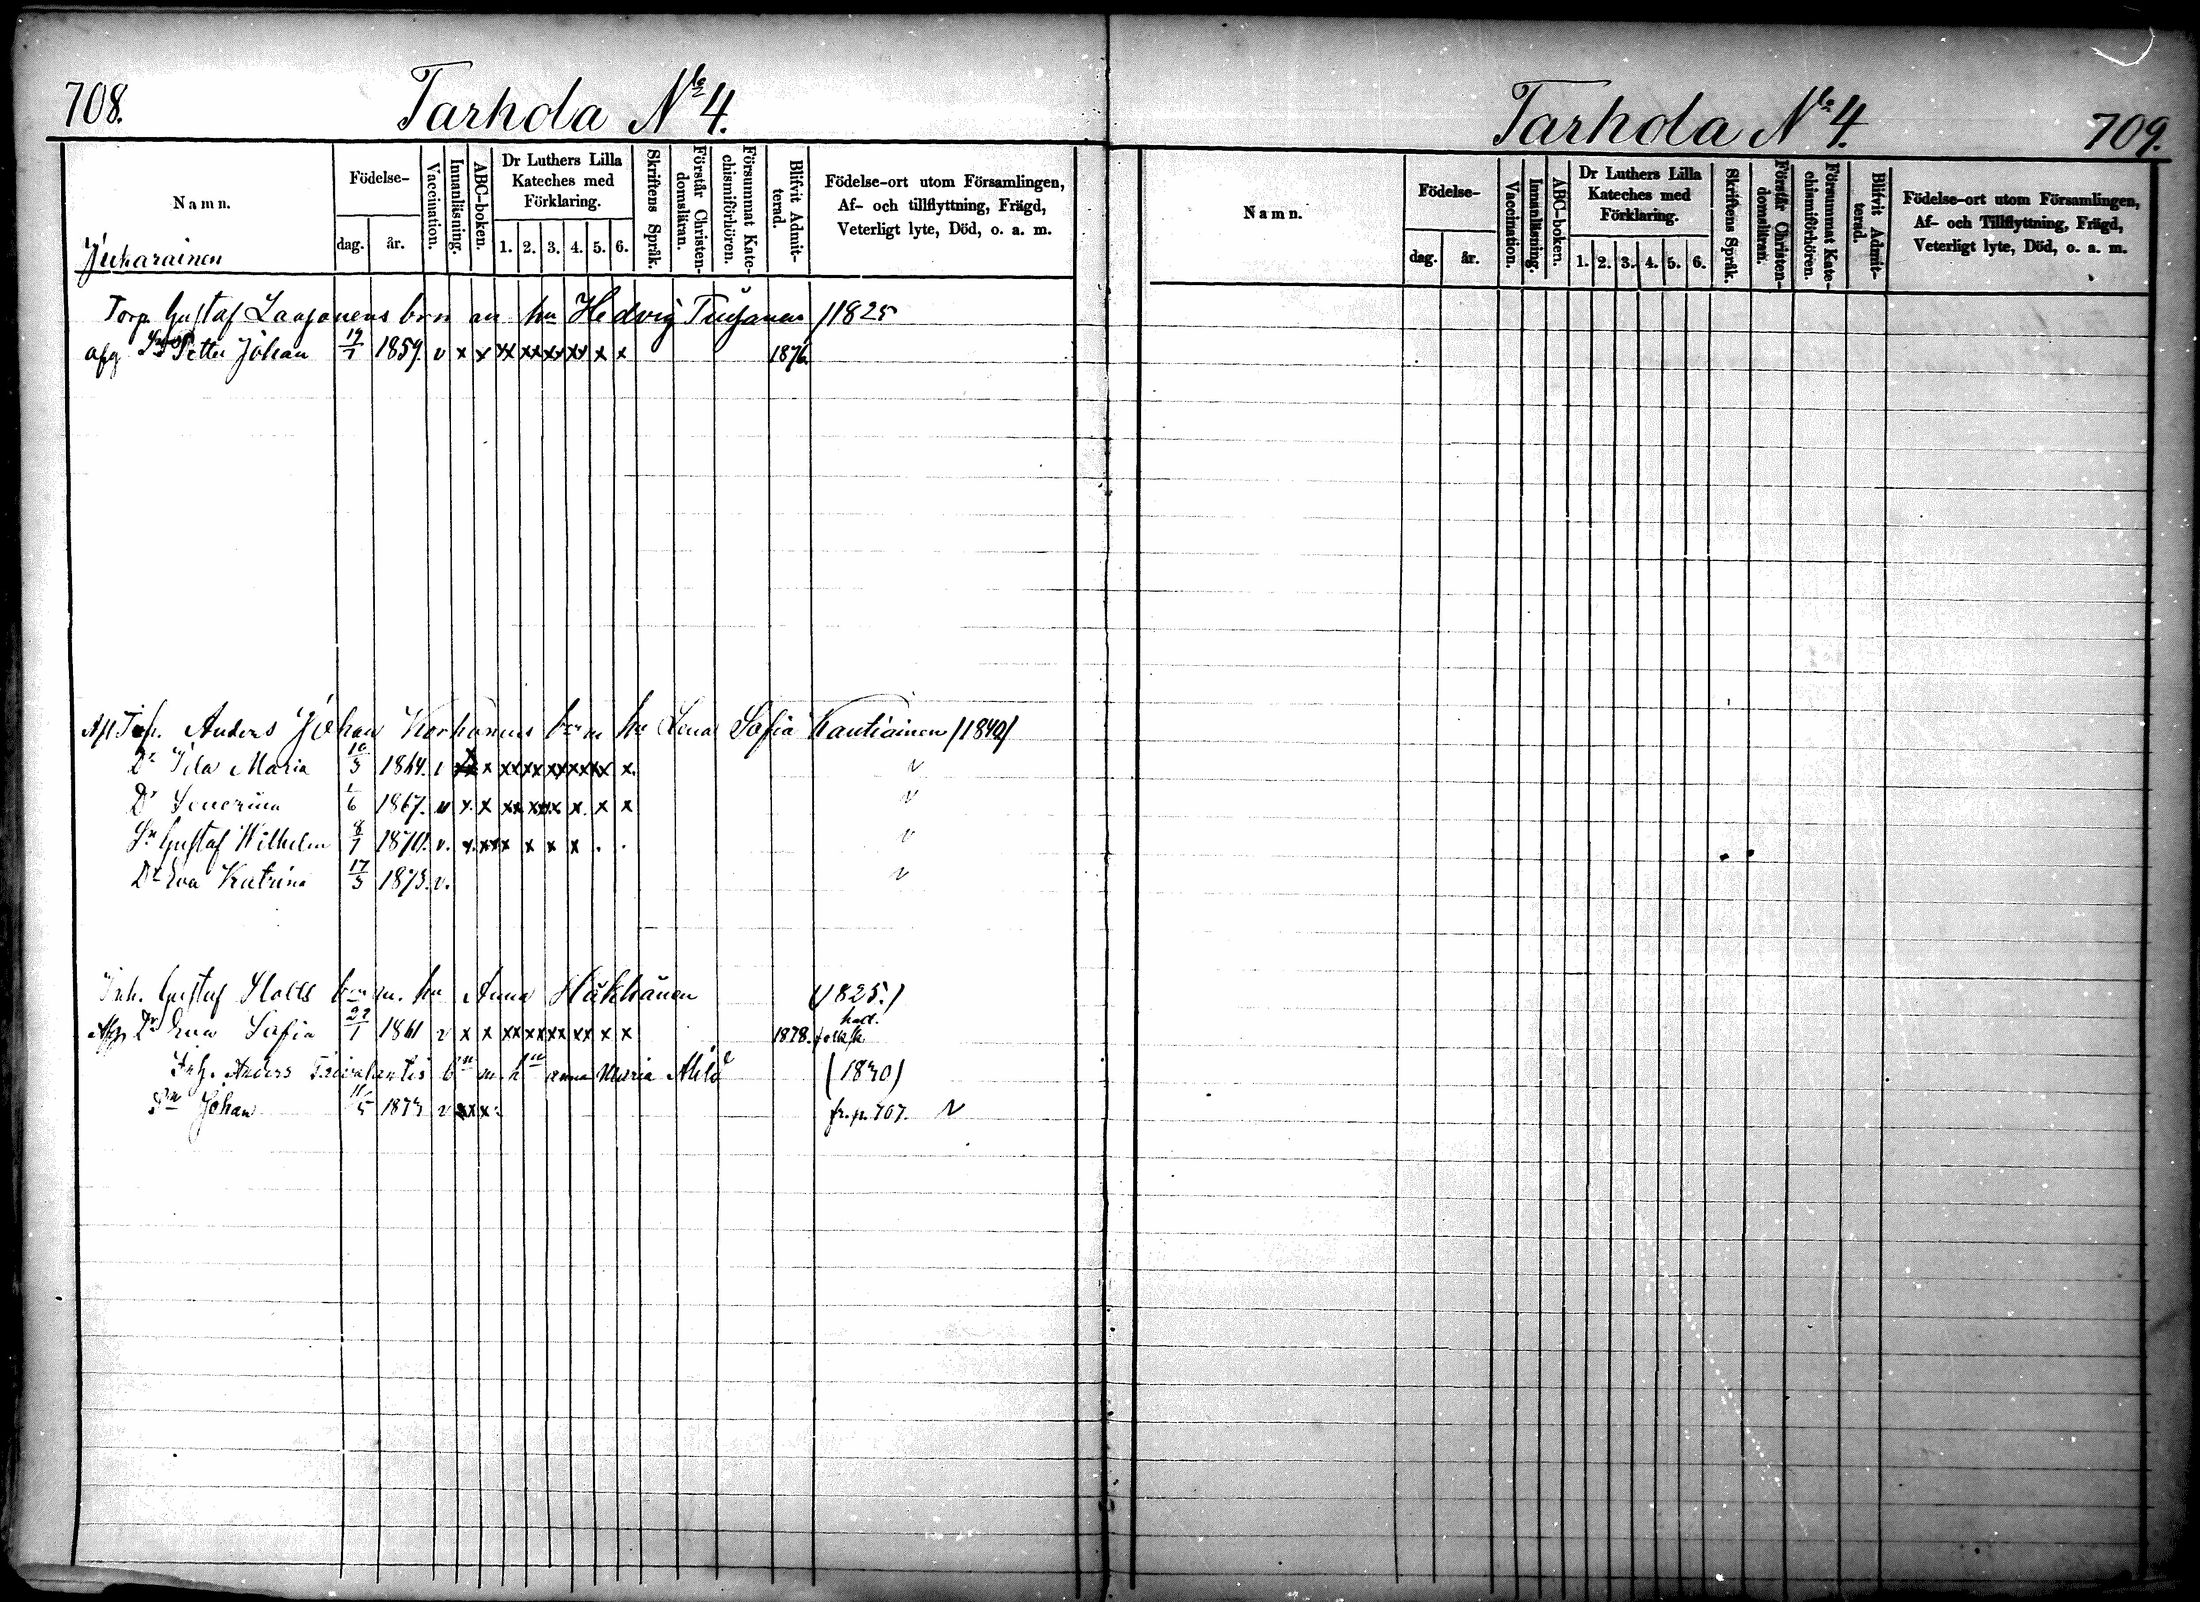 708.
Tarhola No 4.
Namn.
Födelse-
dag.
år.
Vaccination.
Innanläsning.
ABC-boken.
Dr Luthers Lilla
Kateches med
Förklaring.
1. 2. 3. 4. 5. 6.
Skriftens Språk.
Förstår Christen-
domsläran.
Försummat Kate-
chismiförhören.
Blifvit Admit-
terad.
Födelse-ort utom Församlingen,
Af- och tillflyttning, Frägd,
Veterligt lyte, Död, o. a. m.
Torp. Gustaf barn hu Hedvig /1825
afg Petter Johan 17/7 1859. v x x xx xx xx xx x x 1876
Anders Johan Korhonens barn hu Lena Sofia Kautiainen /1840/
Dr Maria 10/5 1864. x xx xx xx xx xx x.
Dr 1867. v x x xx xx x x x x
Sn Gustaf Wilhelm 8/7 1870. v.
Dr Eva Katrina 17/5 1873. v.
Inh. Gustaf barn m. hu Anna Häkkänen (1825.)
Dr Eva Sofia 22/1 1861 v x x xx xx xx xx x x 1878.
Inh. Anders bn m. hu Anna Maria
Sn Johan 11/5 1873 v fr. p. 707.
Tarhola No 4.
709.
Namn.
Födelse-
dag.
år.
Vaccination.
Innanläsning.
ABC-boken.
Dr Luthers Lilla
Kateches med
Förklaring.
1. 2. 3. 4. 5. 6.
Skriftens Språk.
Förstår Christen-
domsläran.
Försummat Kate-
chismiförhören.
Blifvit Admit-
terad.
Födelse-ort utom Församlingen,
Af- och Tillflyttning, Frägd,
Veterligt lyte, Död, o. a. m.